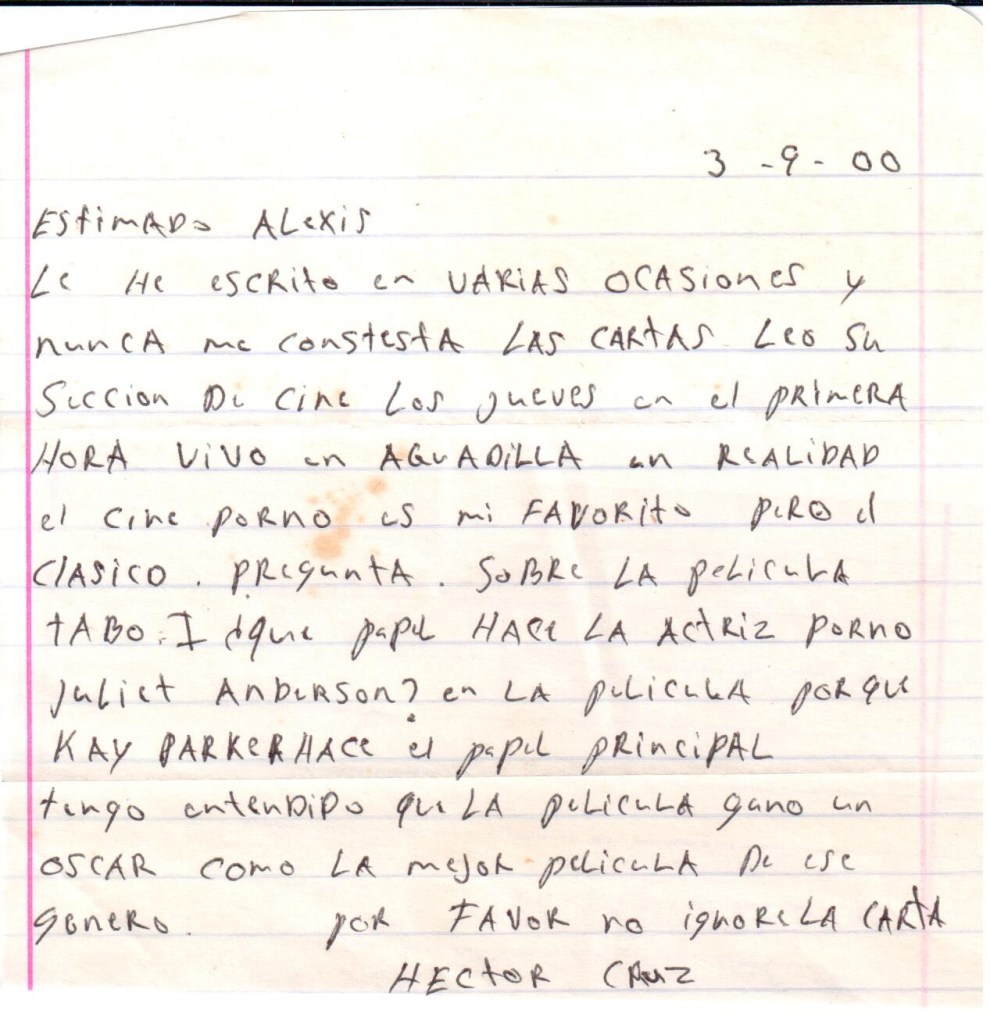 3 - 9 - 00
Estimado Alexis
Le He escrito en VARiAS OCASiones y
nunCA me constestA LAS CARtAS Leo Su
Seccion De Cine Los jueves en el PRimeRA
HORA ViVO en AGUADiLLA en ReALiDAD
el Cine PORNO es mi FAVORito peRO el
ClASiCO . PReguntA . SoBRe LA peLiCuLA
tABO. I ¿que papel HACe LA ACtRiz PoRNO
Juliet AnDeRson? en LA peLiCuLA poRque
KAY PARKeR HACe el papel pRinCipAL
tengo entenDiDo que LA peLiCuLA gano un
OSCAR como LA mejoR peLiCuLA De ese
geneRo. poR FAVOR no ignoRe LA CARtA
HECtoR CRuz